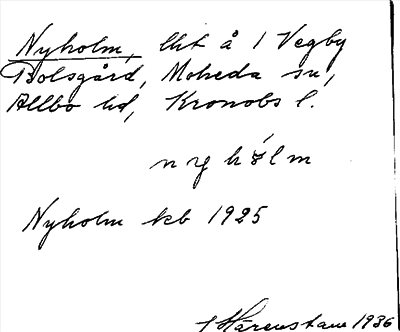 Nyholm, lht å 1 Vegby
Bolsgård, Moheda sn,
Allbo hd, Kronobs l.
nyhólm
Nyholm kb 1925
Härenstam 1936